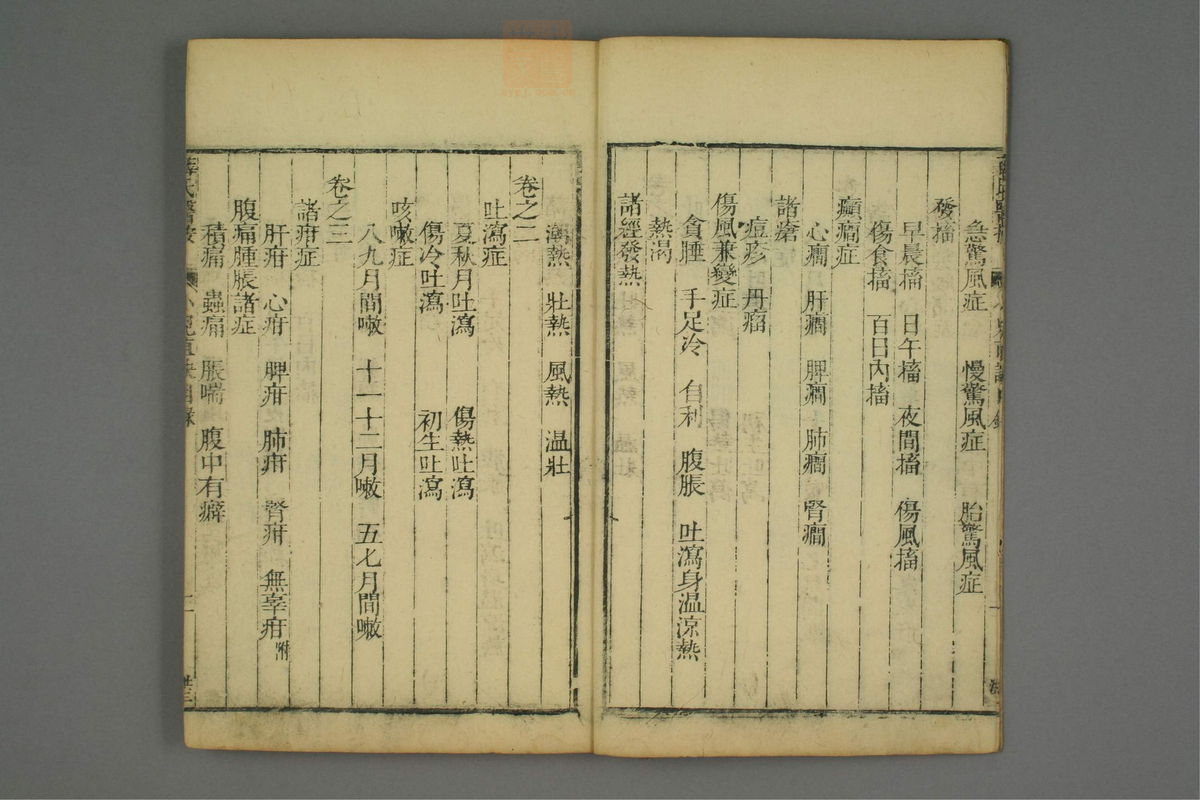 急驚風症 慢驚風症 胎驚風症
發搐
早晨搐 日午搐 夜間搐 傷風搐
傷食搐 百日內搐
癲癎症
心癎 肝癎 脾癎 肺癎 腎癎
諸瘡
痘疹 丹瘤
傷風兼變症
貪睡 手足冷 自利 腹脹 吐瀉身温涼熱
熱渴
諸經發熱
潮熱 壯熱 風熱 温壯
卷之二
吐瀉症
夏秋月吐瀉 傷熱吐瀉
傷冷吐瀉 初生吐瀉
咳嗽症
八九月間嗽 十一十二月嗽 五七月間嗽
卷之三
諸疳症
肝疳 心疳 脾疳 肺疳 腎疳 無辜疳附
腹痛腫脹諸症
積痛 蟲痛 脹喘 腹中有癖